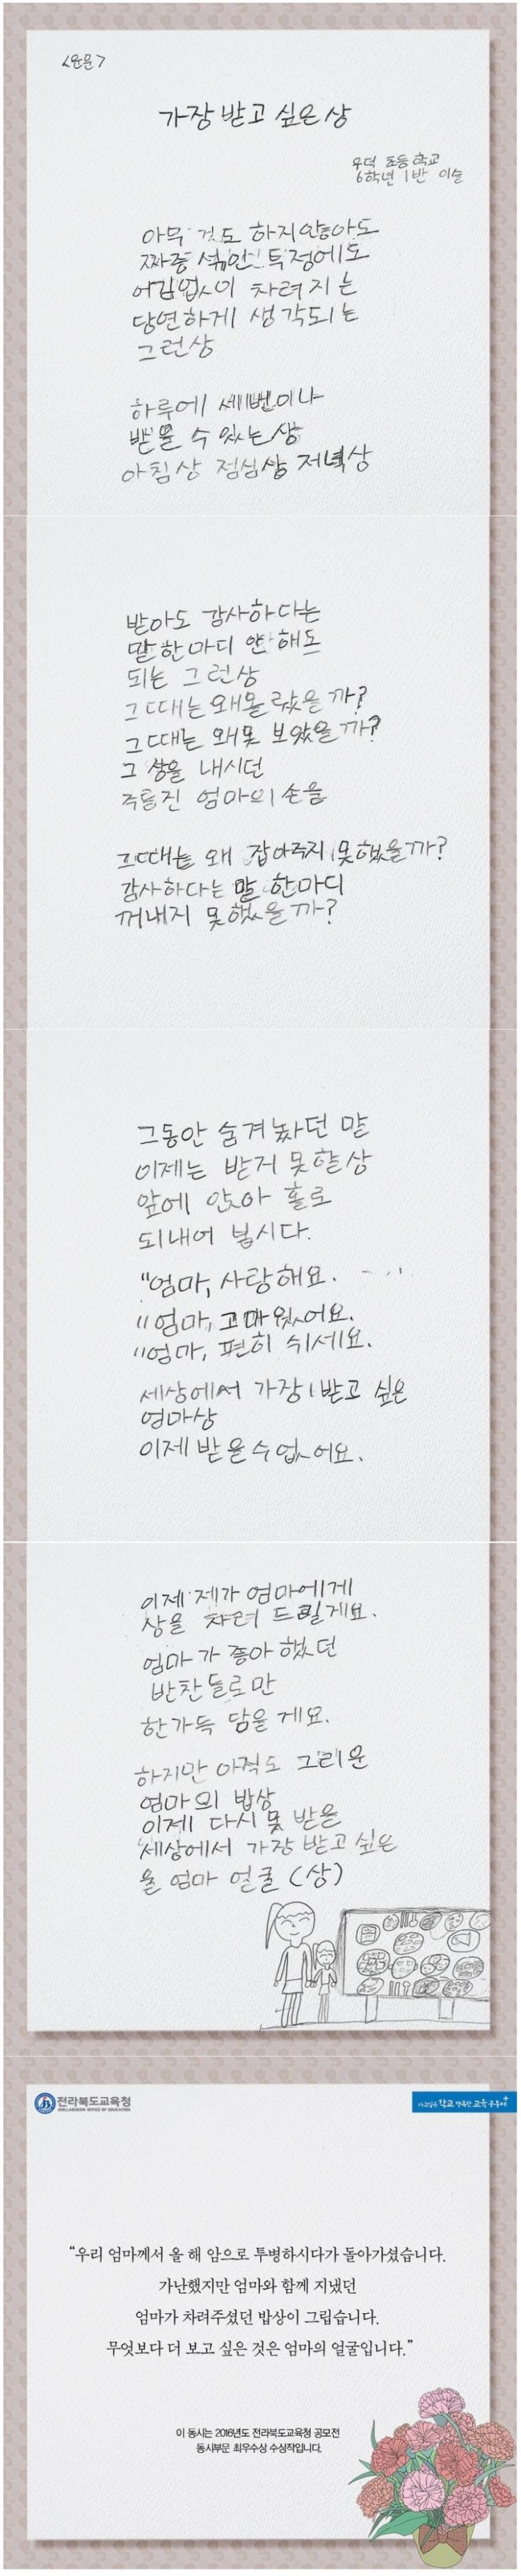 <운문>
가장 받고 싶은 상
우덕 초등학교
6학년 1반 이슬
아무 것도 하지 않아도
짜증 섞인 투정에도
어김없이 차려지는
당연하게 생각되는
그런상
하루에 세번이나
받을 수 있는 상
아침상 점심상 저녁상
받아도 감사하다는
말 한마디 안 해도
되는 그런상
그때는 왜 몰랐을까?
그때는 왜 못 보았을까?
그 상을 내시던
주름진 엄마의 손을
그때는 왜 잡아주지 못했을까?
감사하다는 말 한마디
꺼내지 못했을까?
그동안 숨겨놨던 말
이제는 받지 못할상
앞에 앉아 홀로
되내어 봅시다.
"엄마, 사랑해요.
"엄마, 고마웠어요.
"엄마, 편히 쉬세요.
세상에서 가장 받고 싶은
엄마상
이제 받을수 없어요.
이제 제가 엄마에게
상을 차려 드릴게요.
엄마가 좋아했던
반찬들로만
한가득 담을게요.
하지만 아직도 그리운
엄마의 밥상
이제 다시 못 받을
세상에서 가장 받고 싶은
울 엄마 얼굴 (상)
전라북도교육청
JEOLLABUKDO OFFICE OF EDUCATION
가고싶은 학교 행복한 교육 공동체
"우리 엄마께서 올 해 암으로 투병하시다가 돌아가셨습니다.
가난했지만 엄마와 함께 지냈던
엄마가 차려주셨던 밥상이 그립습니다.
무엇보다 더 보고 싶은 것은 엄마의 얼굴입니다."
이 동시는 2016년도 전라북도교육청 공모전
동시부문 최우수상 수상작입니다.